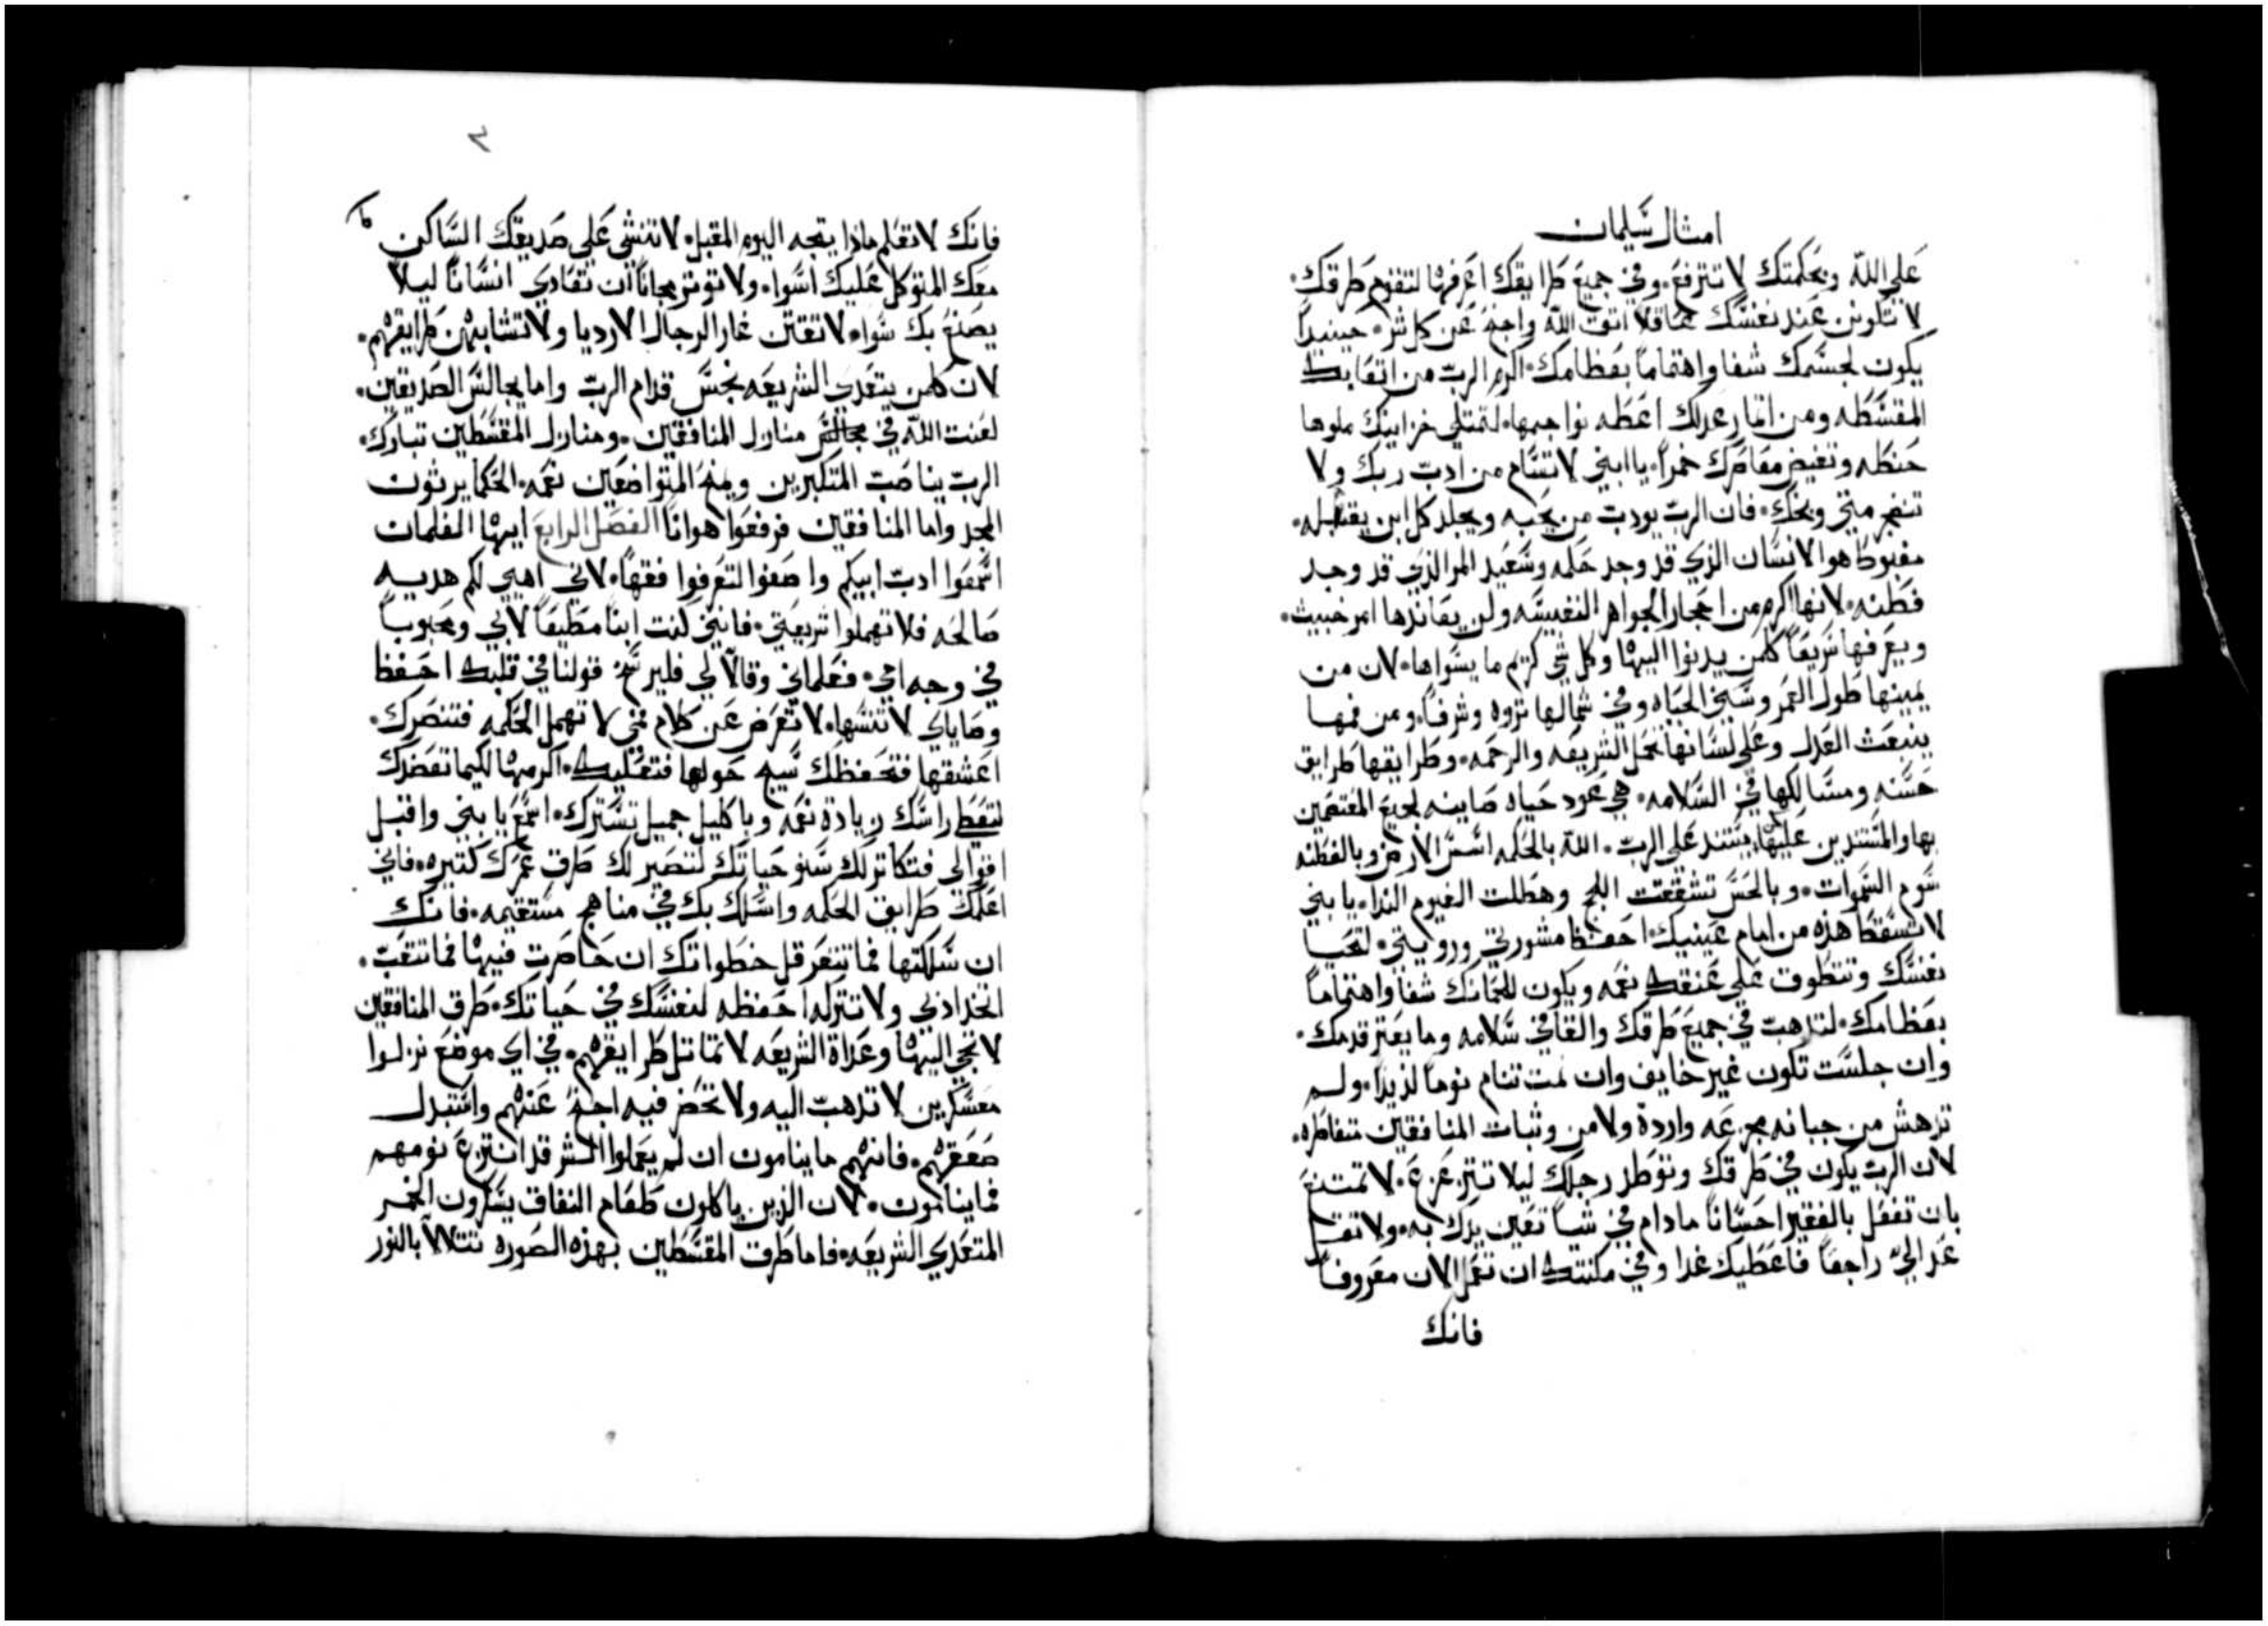 امثال سليمان
على الله وبحكمتك لا تترفع. وفي جميع طرايقك اعرفها لتقوم طرقك.
لا تكونن عند نفسك عاقلا اتق الله واجنح عن كل شر. حينيداً
يكون لجسمك شفا واهتماماً بعظامك. اكرم الرب من اتعابك
المقسطه ومن اثمار عدلك اعطه نواجمها. لتمتلي خزاينك ملوها
حنطه وتفيض معاصرك خمراً. يا ابني لا تسام من ادب ربك ولا
تنفجر متى وبخك. فان الرب يودب من يحبه ويجلد كل ابن يقتبله.
مغبوط هو الانسان الذي قد وجد حكمه وسعيد المر الذي قد وجد
فطنه. لانها اكرم من احجار الجواهر النفيسه ولن يعاندها امر خبيث.
ويعرفها سريعاً كلمن يدنوا اليها وكل شي كريم ما يسواها. لان من
يمينها طول العمر وسني الحياه وفي شمالها ثروه وشرفاً. ومن فمها
ينبعث العدل وعلى لسانها تحمل الشريعه والرحمه. وطرايقها طرايق
حسنه ومسالكها في السلامه. هي عود حياه صاينه لجميع المعتصمين
بها والمستندين عليها كمن يستند على الرب. الله بالحكمه اسس الارض وبالفطنه
سوم السموات. وبالحس تشققت اللجج وهطلت الغيوم الندا. يا بني
لا تسقط هذه من امام عينيك. احفظ مشورتي ورويتي. لتحيا
نفسك وتتطوف على عنقك نعمه ويكون للحمانك شفا واهتماماً
بعظامك. لتذهب في جميع طرقك واثقا في سلامه وما يعثر قدمك.
وان جلست تكون غير خايف وان نمت تنام نوماً لذيذاً. ولم
تدهش من جبانه مجزعه وارده ولا من وثبات المنافقين متفاطره.
لان الرب يكون في طرقك ويوطد رجلك ليلا تتزعزع. لا تمتنع
بان تفعل بالفقير احساناً مادام في شياً تعين يدك به. ولا تقل
عد الي راجعاً فاعطيك غدا وفي مكنتك ان تعمل الان معروفاً
فانك
فانك لا تعلم ماذا ينتجه اليوم المقبل. لا تنشى على صديقك الساكن
معك المتوكل عليك اسوا. ولا توثر مجاناً ان تعادي انساناً ليلا
يصنع بك سوا. لا تقتن عار الرجال الارديا ولا تشابهن طرايقهم.
لان كلمن يتعدي الشريعه نجس قدام الرب واما يجالس الصديقين.
لعنت الله في مجالس منازل المنافقين. ومنازل المقسطين تبارك.
الرب يناصب المتكبرين ويمنح المتواضعين نعمه. الحكما يرثون
المجد واما المنافقين فرفعوا هواناً الفصل الرابع ايها الغلمات
اسمعوا ادب ابيكم واصغوا لتعرفوا فقهاً. لاني اهبي لكم هديه
صالحه فلا تهملوا شريعتي. فانني كنت ابناً مطيعاً لابي ومحبوباً
في وجه امي. فعلماني وقالا لي فليرسخ قولنا في قلبك احفظ
وصاياي لا تنسها. لا تعرض عن كلام فمي لا تهمل الحكمه فتنصرك.
اعشقها فتحفظك سيج حولها فتعليك. اكرمها لكيما تعضدك
لتعط راسك زيادة نعمه وباكليل جميل تسترك. اسمع يا بني واقتبل
اقوالي فتكاثر لك سنو حياتك لتصير لك طرق عمرك كثيره. فاني
اعلمك طرايق الحكمه واسلك بك في مناهج مستقيمه. فانك
ان سلكتها فما تتعرقل خطواتك ان حاضرت فيها فما تتعب.
اتخذ ادبي ولا تتركه احفظه لنفسك في حياتك. طرق المنافقين
لا تجي اليها وعداة الشريعه لا تماثل طرايقهم. في اي موضع نزلوا
معسكرين لا تذهب اليه ولا تحضر فيه اجنح عنهم واستبدل
صقعهم. فانهم ما ينامون ان لم يعملوا الشر قد انتزع نومهم
فما ينامون. لان الذين ياكلون طعام النفاق يسكرون الخمر
المتعدي الشريعه. فاما طرق المقسطين بهذه الصوره تتلالا بالنور